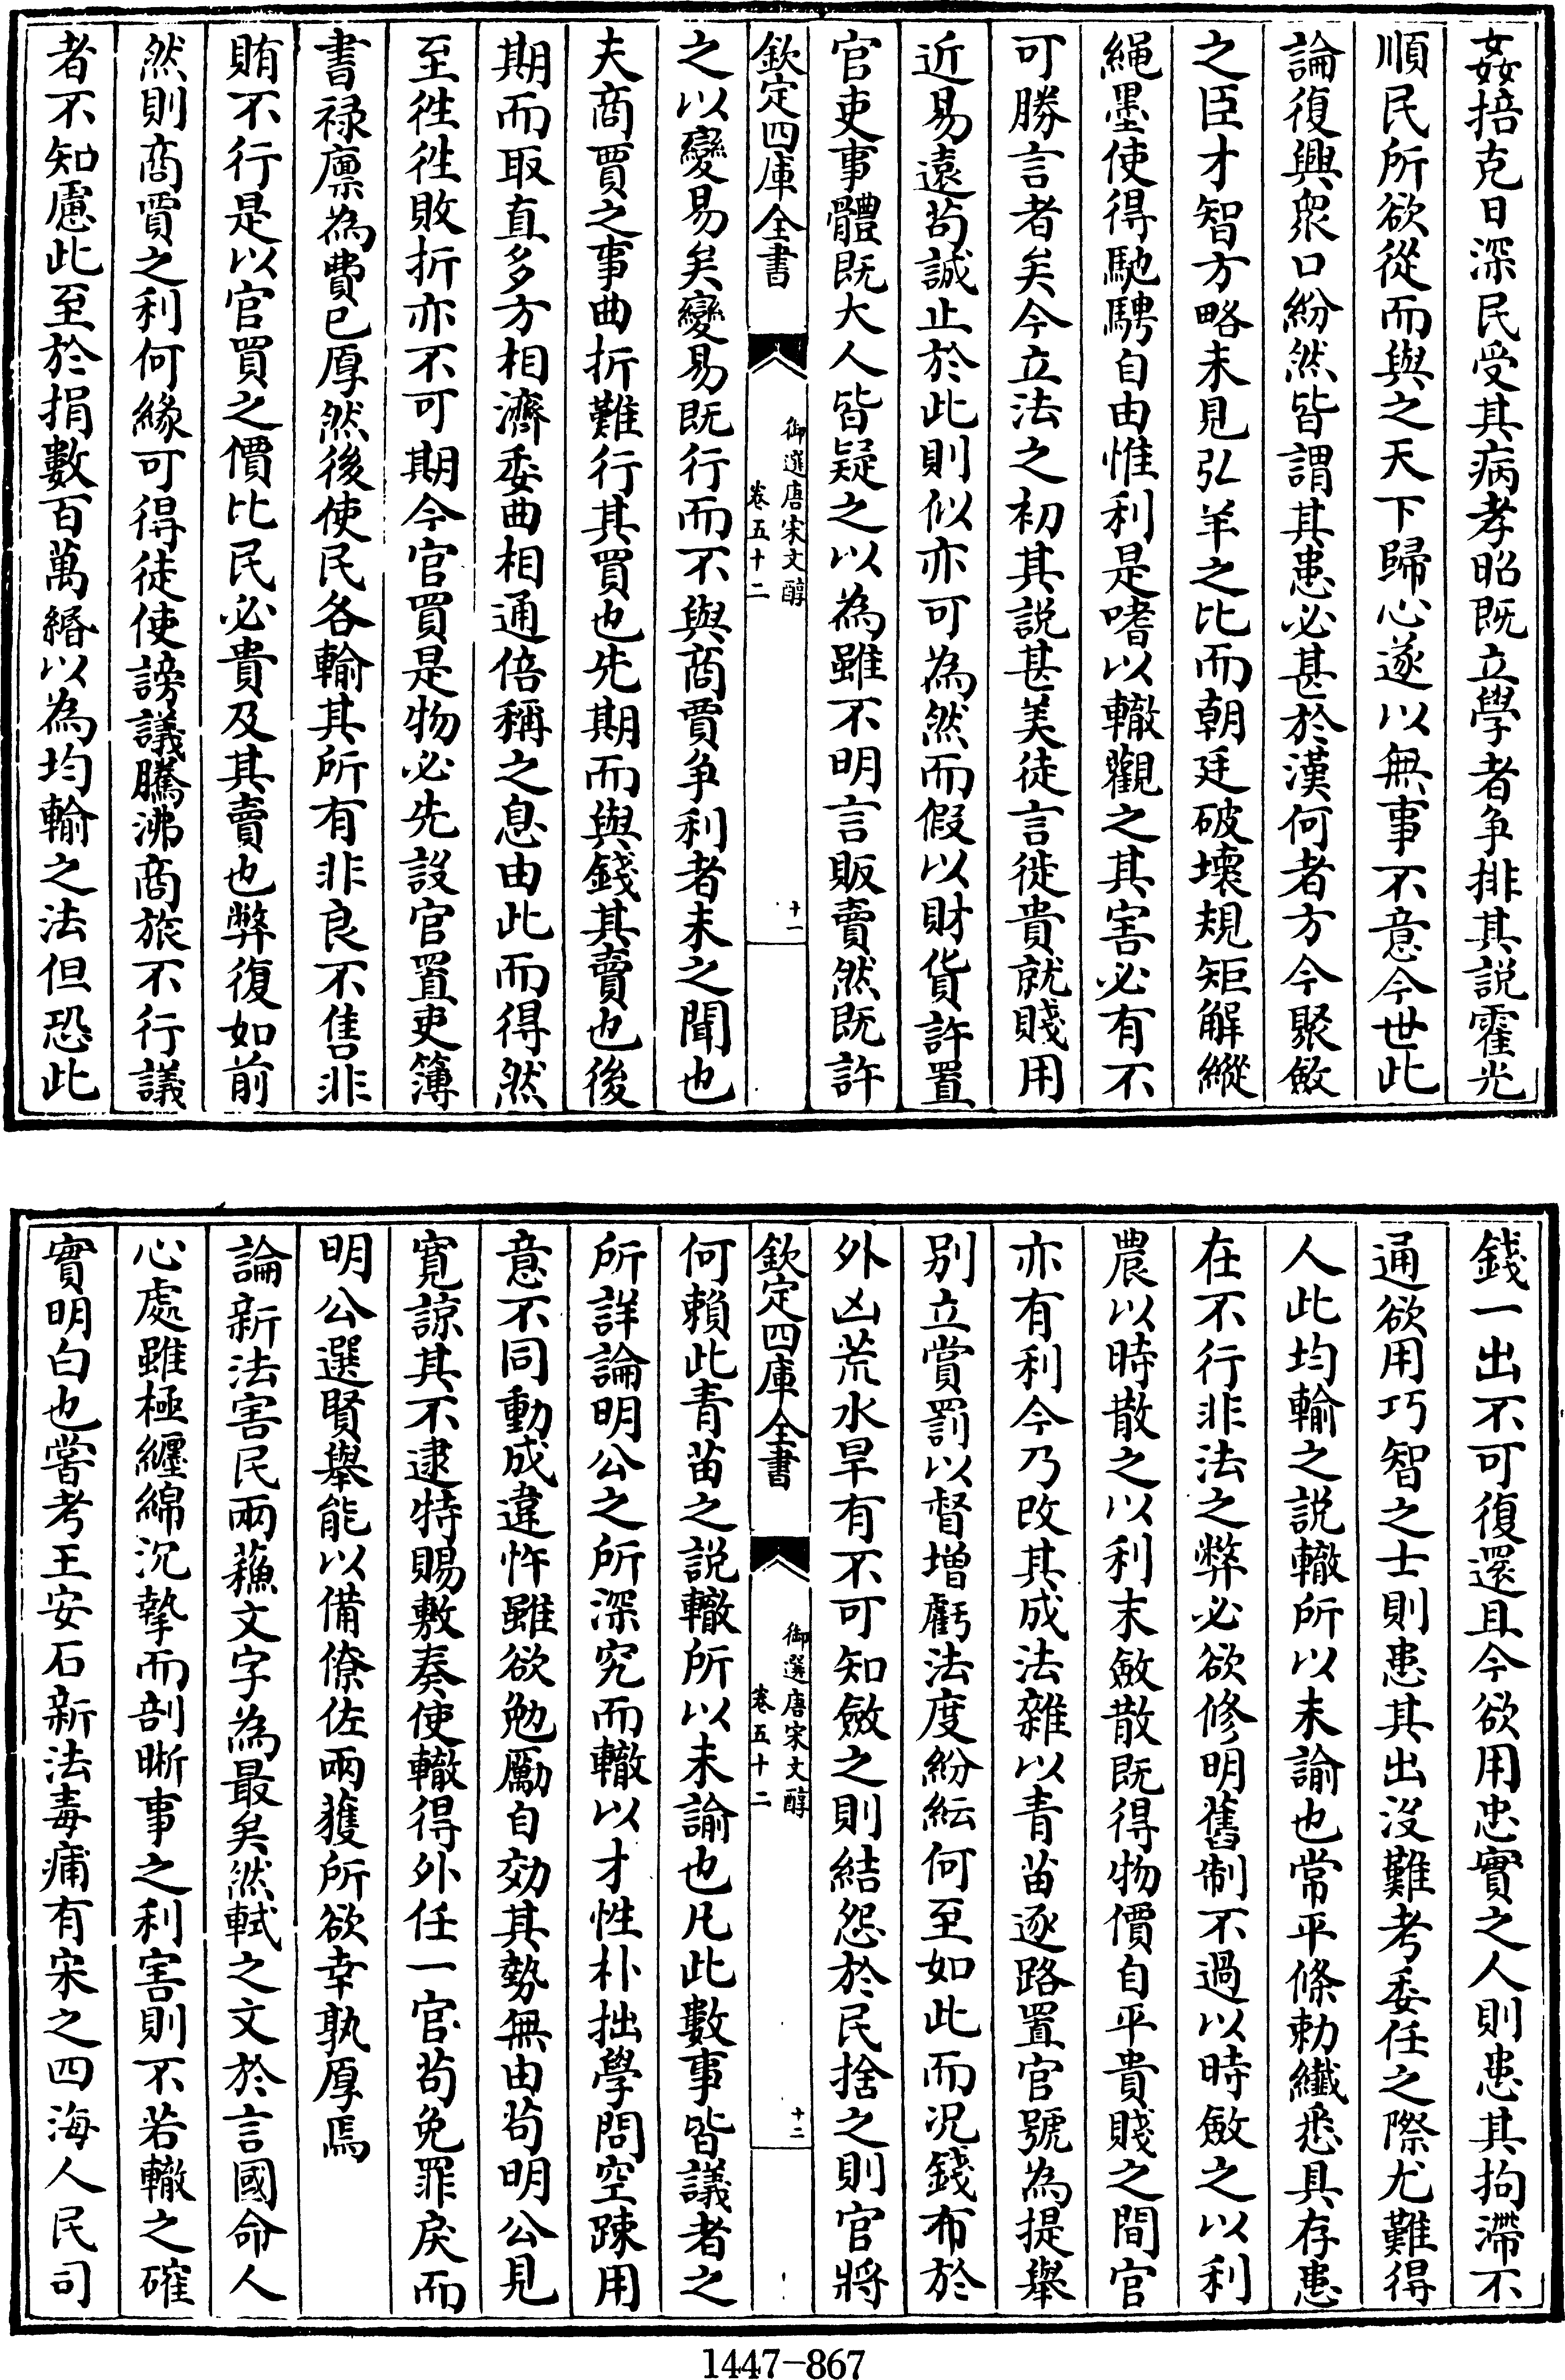 姦掊克日深民受其病孝昭既立學者争排其説霍光
順民所欲從而與之天下歸心遂以無事不意今世此
論復興衆口紛然皆謂其患必甚於漢何者方今聚斂
之臣才智方略未見弘羊之比而朝廷破壊規矩解縱
繩墨使得馳騁自由惟利是嗜以轍觀之其害必有不
可勝言者矣今立法之初其説甚美徒言徙貴就賤用
近易遠茍誠止於此則似亦可為然而假以財貨許置
官吏事體既大人皆疑之以為雖不明言販賣然既許
欽定四庫全書
御選唐宋文醇
卷五十二
十一
之以變易矣變易既行而不與商賈争利者未之聞也
夫商賈之事曲折難行其買也先期而與錢其賣也後
期而取直多方相濟委曲相通倍稱之息由此而得然
至徃徃敗折亦不可期今官買是物必先設官置吏簿
書禄廪為費已厚然後使民各輸其所有非良不售非
賄不行是以官買之價比民必貴及其賣也弊復如前
然則商賈之利何緣可得徒使謗議騰沸商旅不行議
者不知慮此至於捐數百萬緡以為均輸之法但恐此
錢一出不可復還且今欲用忠實之人則患其拘滯不
通欲用巧智之士則患其出沒難考委任之際尤難得
人此均輸之説轍所以未諭也常平條勅纎悉具存患
在不行非法之弊必欲修明舊制不過以時斂之以利
農以時散之以利末斂散既得物價自平貴賤之間官
亦有利今乃改其成法雜以青苗逐路置官號為提舉
别立賞罰以督增虧法度紛紜何至如此而况錢布於
外凶荒水旱有不可知斂之則結怨於民捨之則官將
欽定四庫全書
御選唐宋文醇
卷五十二
十二
何賴此青苗之説轍所以未諭也凡此數事皆議者之
所詳論明公之所深究而轍以才性朴拙學問空疎用
意不同動成違忤雖欲勉勵自効其勢無由茍明公見
寛諒其不逮特賜敷奏使轍得外任一官茍免罪戾而
明公選賢舉能以備僚佐兩獲所欲幸孰厚焉
論新法害民兩蘓文字為最矣然軾之文於言國命人
心處雖極纒綿沉摯而剖晰事之利害則不若轍之確
實明白也嘗考王安石新法毒痡有宋之四海人民司
1447-867